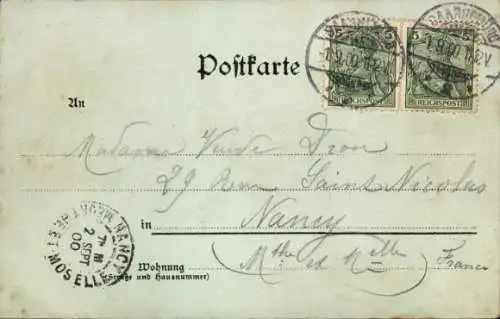 5 5
REICHSPOST REICHSPOST
Postkarte
An
Madame Dron
29 Saint Nicolas
in Nancy
(Mthe et Mlle) France
NANCY
7 M
2 SEPT
00
MEURTHE-ET-MOSELLE
Wohnung
(Straße und Hausnummer)